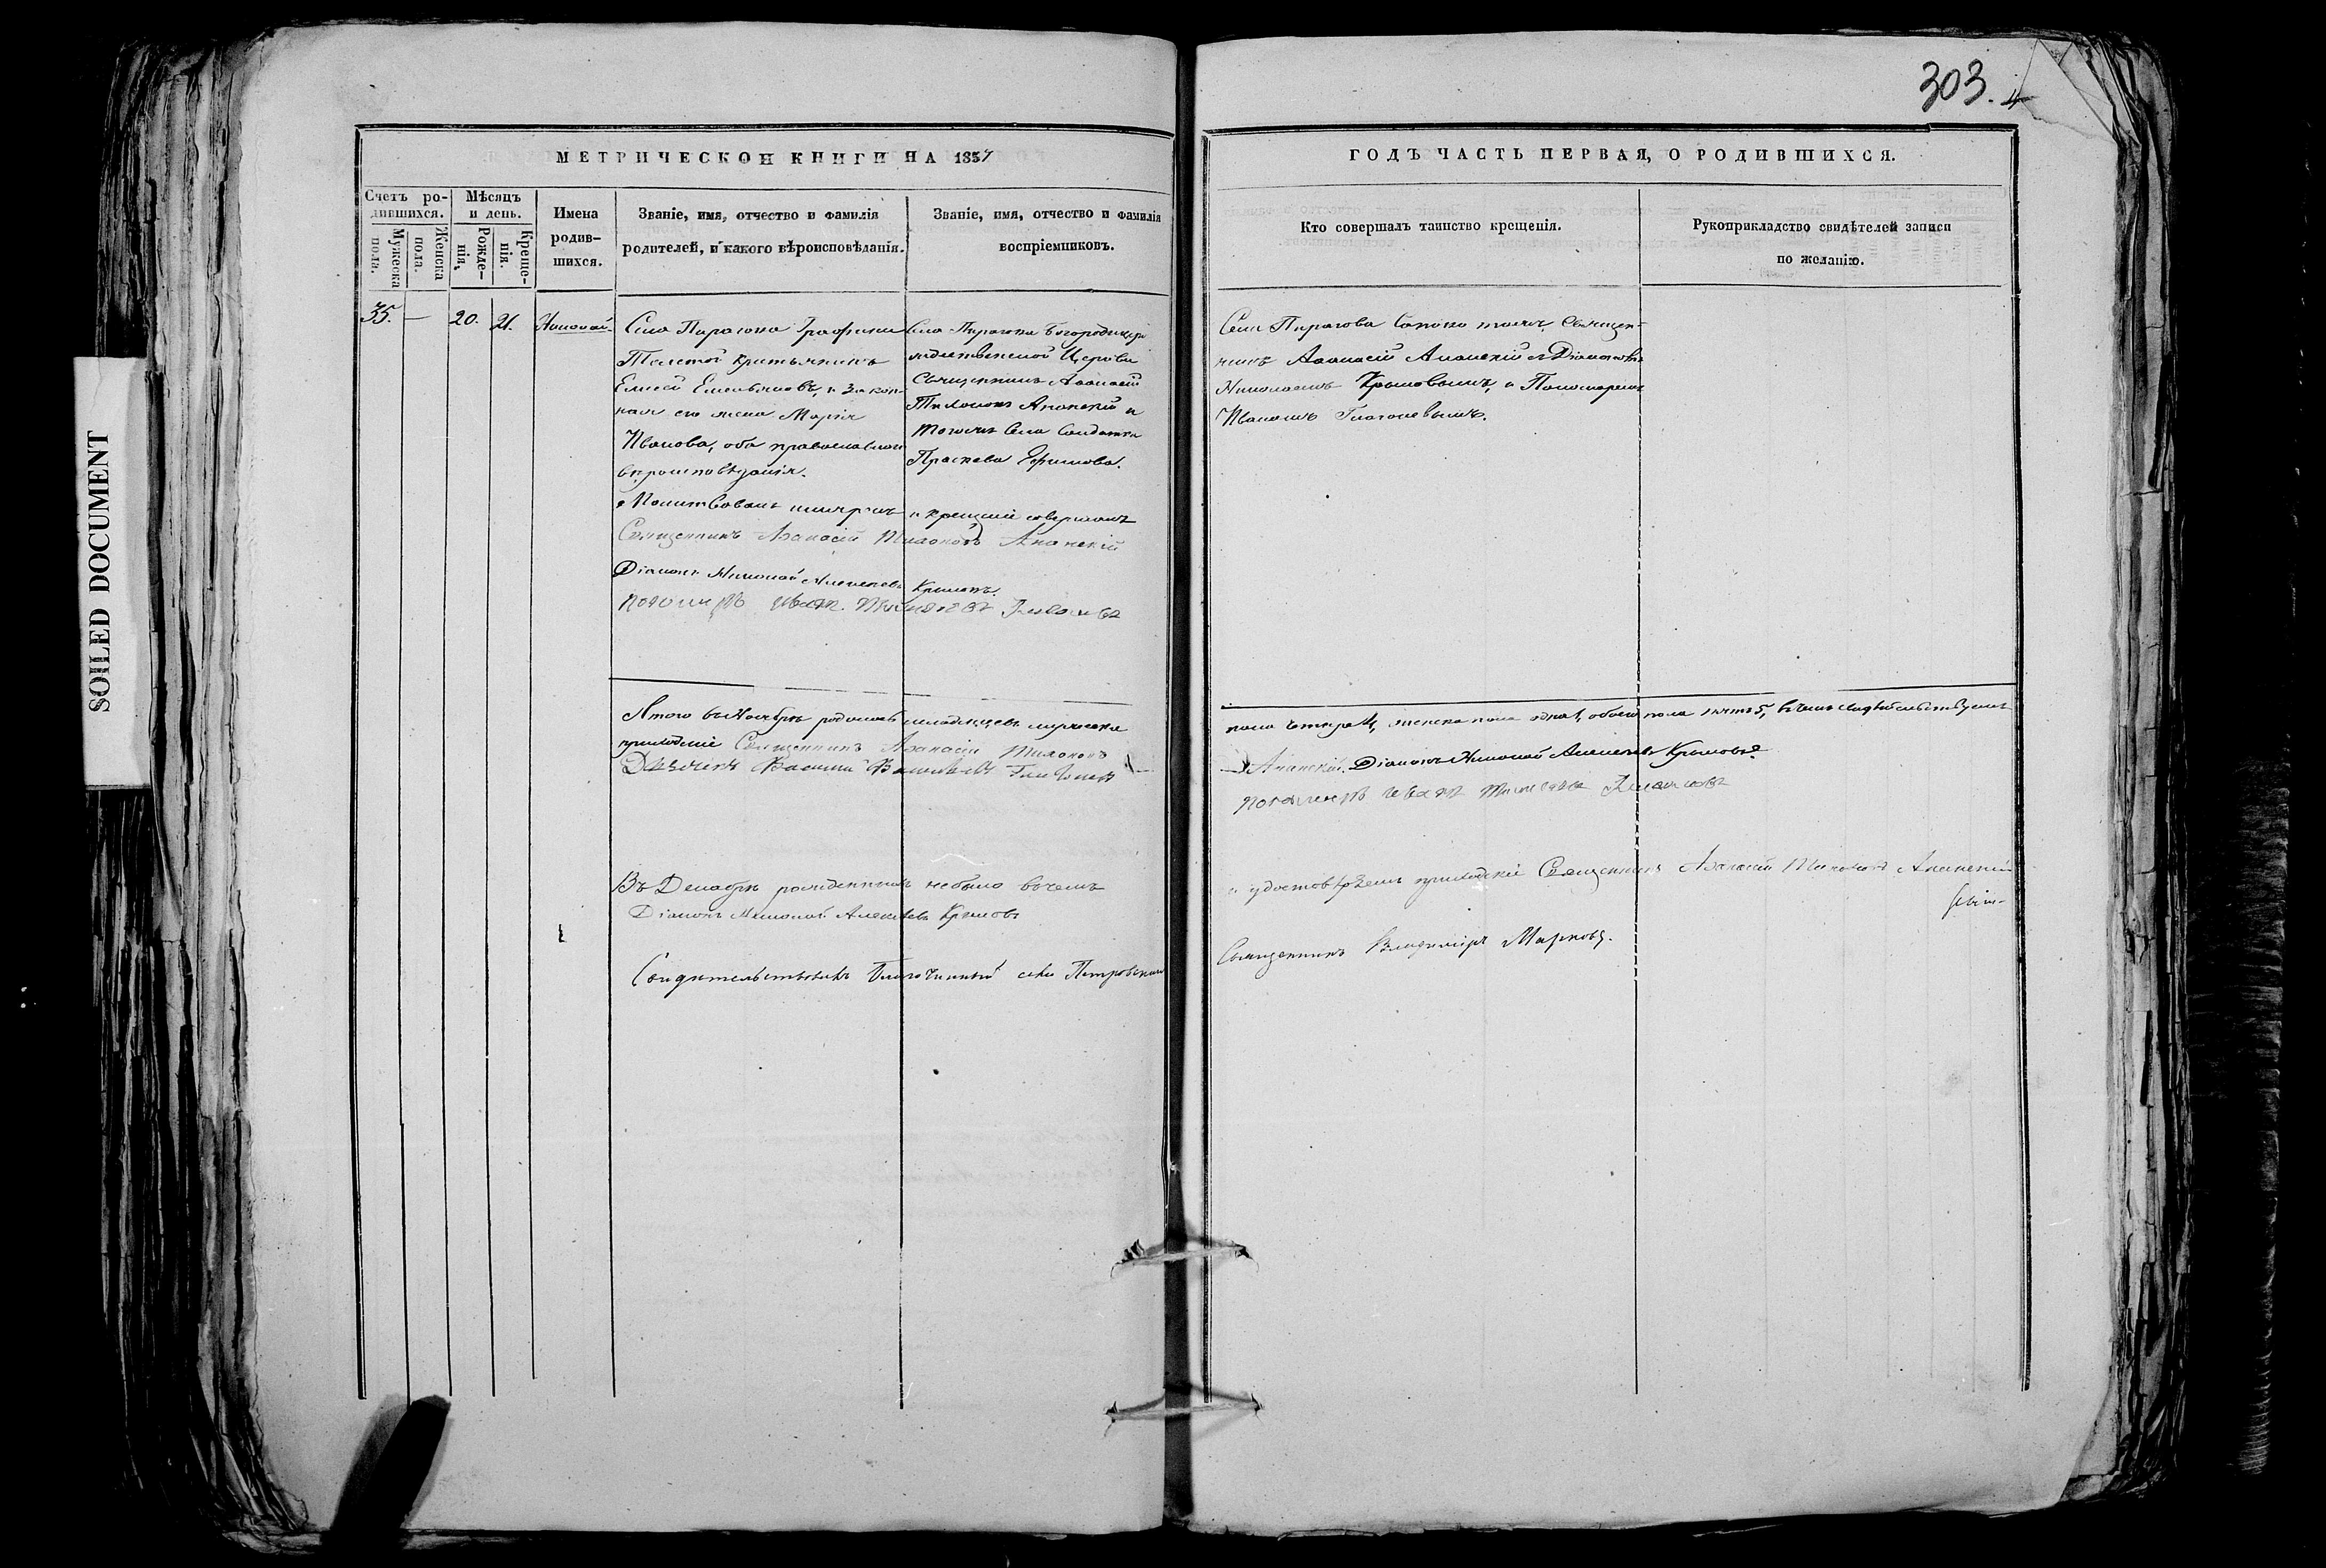 303.
МЕТРИЧЕСКОЙ КНИГИ НА 1857
Счетъ ро-
дившихся.
Мужеска пола.
Женска пола.
Мѣсяцъ
и день.
Рожде-
нія.
Креще-
нія.
Имена
родив-
шихся.
Званіе, имя, отчество и фамилія
родителей, и какого вѣроисповѣданія.
Званіе, имя, отчество и фамилія
воспріемниковъ.
35.
—
20.
21.
Николай.
Села Пирогова Графини
Толстой крестьянинъ
Елисей Емельяновъ, и закон-
ная его жена Марія
Иванова, оба православнаго
вѣроисповѣданія.
Села Пирогова Богородице
рождественской Церкви
Священникъ Аѳанасій
Тихоновъ Ананскій и
тогожъ Села Солдатка
Праскева Ефимова.
Молитвовалъ и крещеніе совершалъ
Священникъ Аѳанасій Тихоновъ Ананскій
Діаконъ Николай Алексѣевъ Крыловъ.
Пономарь Иванъ
Итого въ Ноябрѣ родилось младенцевъ мужеска
приходскіе Священникъ Аѳанасій Тихоновъ
Дьячекъ Василій
Въ Декабрѣ рожденныхъ небыло въ чемъ
Діаконъ Николай Алексѣевъ Крыловъ
Свидѣтельствовалъ Благочинный села Петровскаго
ГОДЪ ЧАСТЬ ПЕРВАЯ, О РОДИВШИХСЯ.
Кто совершалъ таинство крещенія.
Рукоприкладство свидѣтелей записи
по желанію.
Села Пирогова Священ-
никъ Аѳанасій Ананскій съ Діакономъ
Николаемъ Крыловымъ, и Пономаремъ
Иваномъ Глаголевымъ.
пола четыре 4, женска пола одна 1, обоего пола пять 5, въ чемъ свидѣтельствуемъ
Ананскій. Діаконъ Николай Алексѣевъ Крыловъ
Пономарь Иванъ
и удостовѣряемъ приходскіе Священникъ Аѳанасій Тихоновъ Ананскій
Священникъ Владиміръ Марковъ.
SOILED DOCUMENT